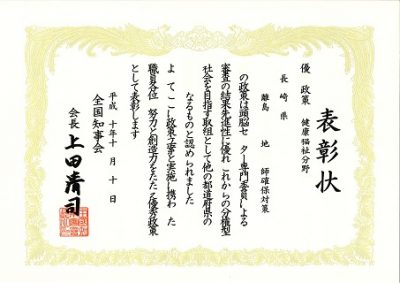 表彰状
優 政策 健康福祉分野
長崎県
離島 地 師確保対策
の政策は頭脳セ ター専門委員による
審査の結果先進性に優れ これからの分権型
社会を目指す取組として他の都道府県の
なるものと認められました
よ て こ 政策立案と実施に携わ た
職員各位 努力と創造力をたたえ優秀政策
として表彰します
平成 十年十 月十 日
全国知事会
会長 上田清司